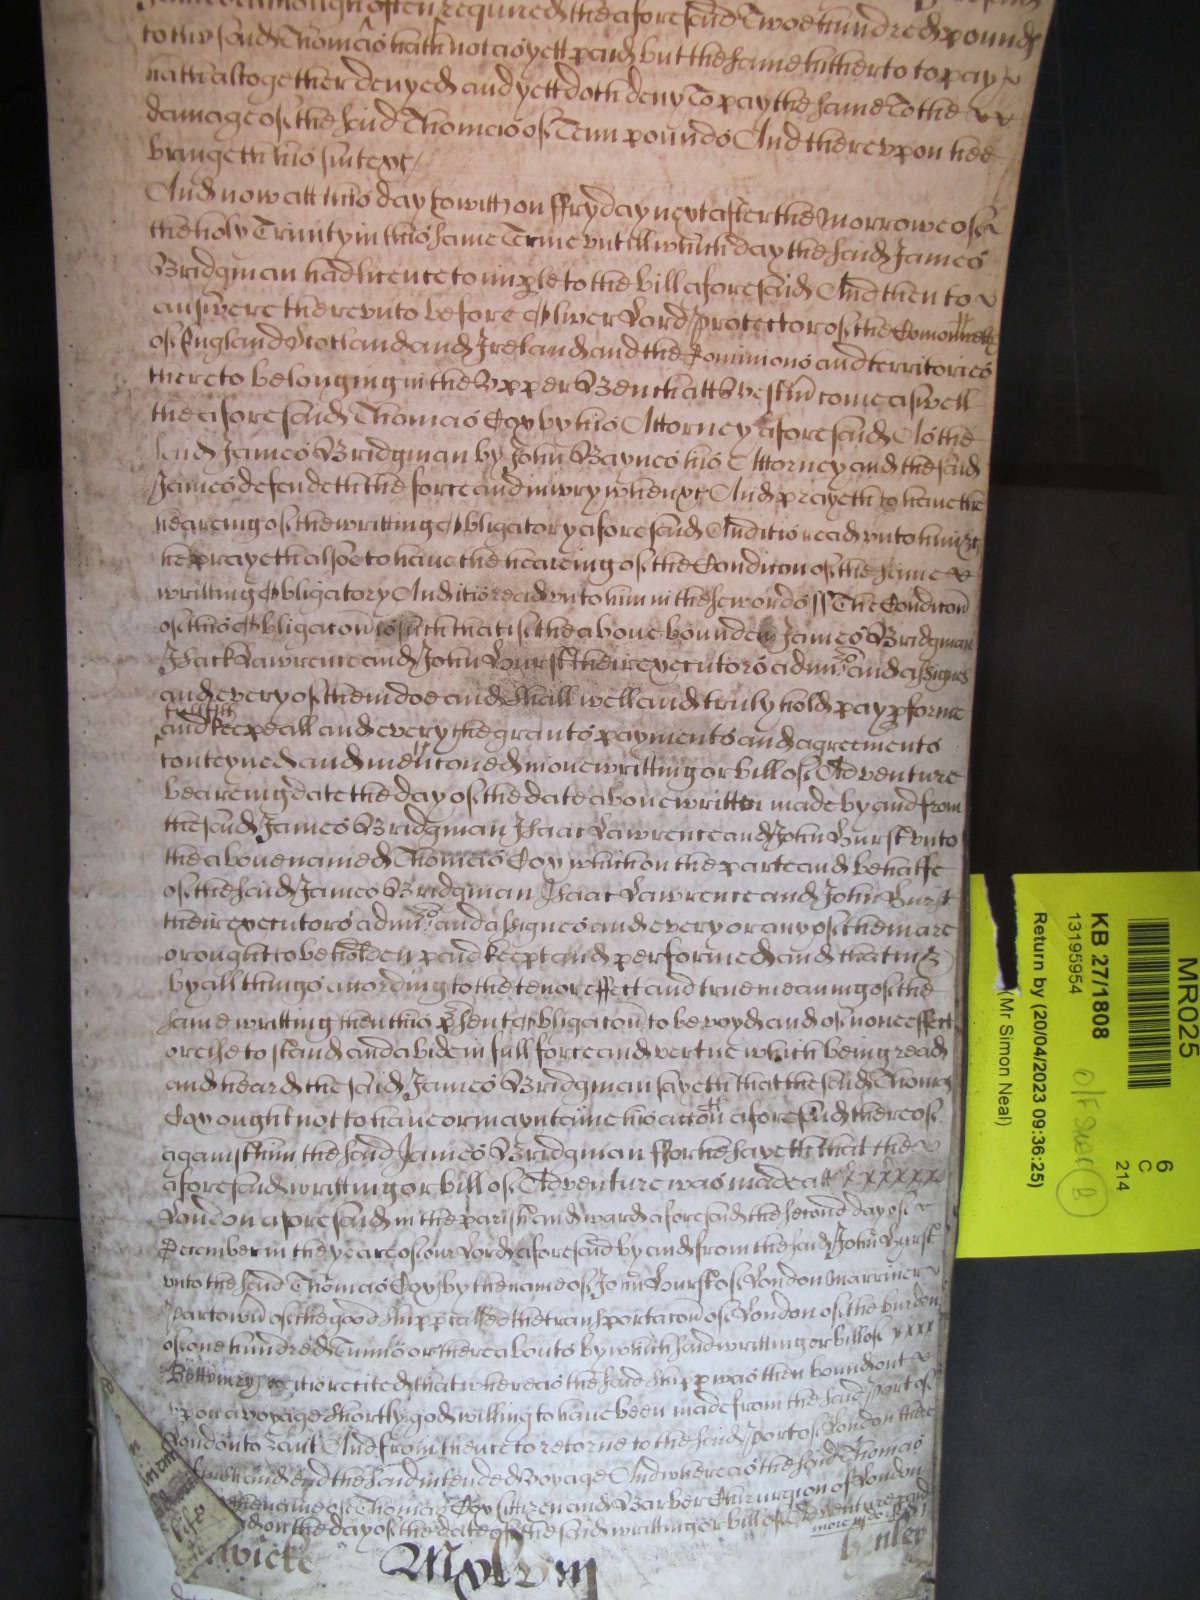 Same although often required the aforesaid Twoe hundred pounds
to the said Thomas hath not as yett paid but the same hitherto to pay
hath altogether denyed and yett doth deny To pay the same To the
damage of the said Thomas of Tenn pounds And thereupon hee
bringeth his suite &c
And now att this day to witt on ffryday next after the Morrowe of
the holy Trinity in this same Terme untill which day the said James
Bridgman had licence to imple to the bill aforesaid And then to
answere thereunto before Oliver Lord Protector of the Comonwealth
of England Scotland and Ireland and the Dominions and territories
thereto belonging in the Upper Bench att Westm come aswell
the aforesaid Thomas Coxy by his Attorney aforesaid As the
said James Bridgman by John Baynes his Attorney and the said
James defendeth the force and iniury when &c And prayeth to have the
heareing of the writting Obligatory aforesaid And it is read unto him &c
he prayeth alsoe to have the heareing of the Condicon of the same
writting Obligatory And it is read unto him in these words ss The Condicon
of this Obligacon is such that if the above bounden James Bridgman
Isack Lawrence and John Hurst their executors admrs and assignes
and every of them doe and shall well and truly hold pay pforme
fullfill
and keepe all and every the grants payments and agreements
conteyned and mencioned in one writting or bill of Adventure
beareing date the day of the date above written made by and from
the said James Bridgman Isaac Lawrence and John Hurst unto
the above named Thomas Coxy which on the parte and behalfe
of the said James Bridgman Isaac Lawrence and John Hurst
their executors admrs and assignes and every or any of them are
or ought to be holden paid kept and performed and that in &
by all things according to the tenor effect and true meaning of the
same writting then this psent Obligacon to be voyd and of none effect
or else to stand and abide in full force and vertue which being read
and heard the said James Bridgman sayeth that the said Thomas
Coxy ought not to have or mayntaine his accon aforesaid thereof
against him the said James Bridgman ffor he sayeth that the
aforesaid writting or bill of Adventure was made att xxxxxx
London aforesaid in the parish and ward aforesaid the second day of
December in the yeare of our Lord aforesaid by and from the said John Hurst
unto the said Thomas Coxy by the name of John Hurst of London Marriner
part own of the good shipp called the transportacon of London of the burden
of one hundred Tunns or thereabouts by which said writting or bill of xxxx
Bottomry it is recited that whereas the said shipp was then bound out
upon a voyage shortly god willing to have been made from the said Port of
London to Zant And from thence to retorne to the said Port of London there
finish and end the said intended Voyage And whereas the said Thomas
the name of Thomas Coxy Cittizen and Barber Chirurgion of London
on the day of the date of the said writting or bill of Adventure paid
more indorsed
wicke
KB 27/1808
13195954
Return by (20/04/2023 09:36:25)
(Mr Simon Neal)
MR025
6
C
214